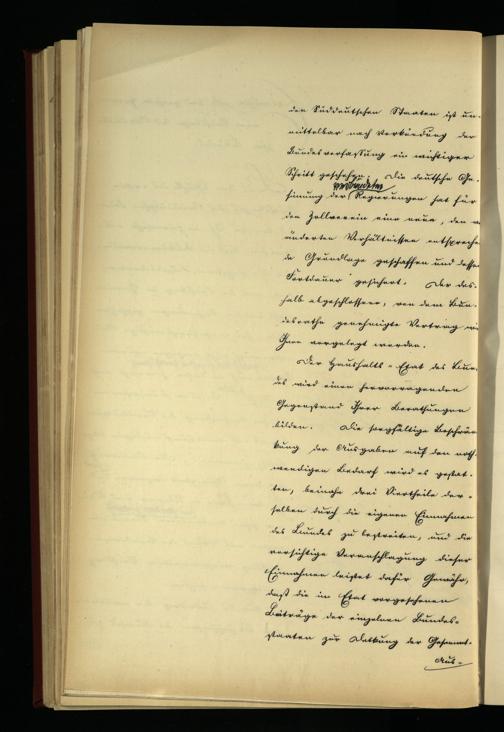 den Süddeutschen Staaten ist un-
mittelbar nach Verkündung der
Bundesverfassung ein wichtiger
Schritt geschehen. Die deutsche Ge-
verbündeten
sinnung der Regierungen hat für
den Zollverein eine neue, den
änderten Verhältnissen entspreche
de Grundlage geschaffen und dessen
Fortdauer gesichert. Der des-
halb abgeschlossene, von dem Bun-
desrathe genehmigte Vertrag wi
Ihnen vorgelegt werden.
Der Haushalts-Etat des Bun-
des wird einen hervorragenden
Gegenstand Ihrer Berathungen
bilden. Die sorgfältige Beschrän
kung der Ausgaben auf den noth-
wendigen Bedarf wird es gestat-
ten, beinahe drei Viertheile der-
selben durch die eigenen Einnahmen
des Bundes zu bestreiten, und die
vorsichtige Veranschlagung dieser
Einnahmen leistet dafür Gewähr,
daß die im Etat vorgesehenen
Beiträge der einzelnen Bundes-
staaten zur Deckung der Gesammt-
Aus-